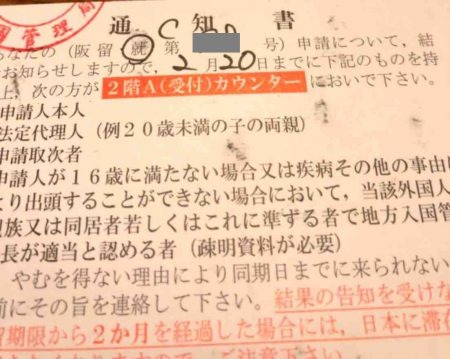 国管理局
通知書
なたの（阪留就第C 号）申請について，結
お知らせしますので，2月20日までに下記のものを持
上，次の方が2階A（受付）カウンターにおいで下さい。
申請人本人
法定代理人（例２０歳未満の子の両親）
申請取次者
申請人が１６歳に満たない場合又は疾病その他の事由に
り出頭することができない場合において，当該外国人
親族又は同居者若しくはこれに準ずる者で地方入国管
長が適当と認める者（疎明資料が必要）
やむを得ない理由により同期日までに来られない
前にその旨を連絡して下さい。結果の告知を受けな
留期限から２か月を経過した場合には，日本に滞在